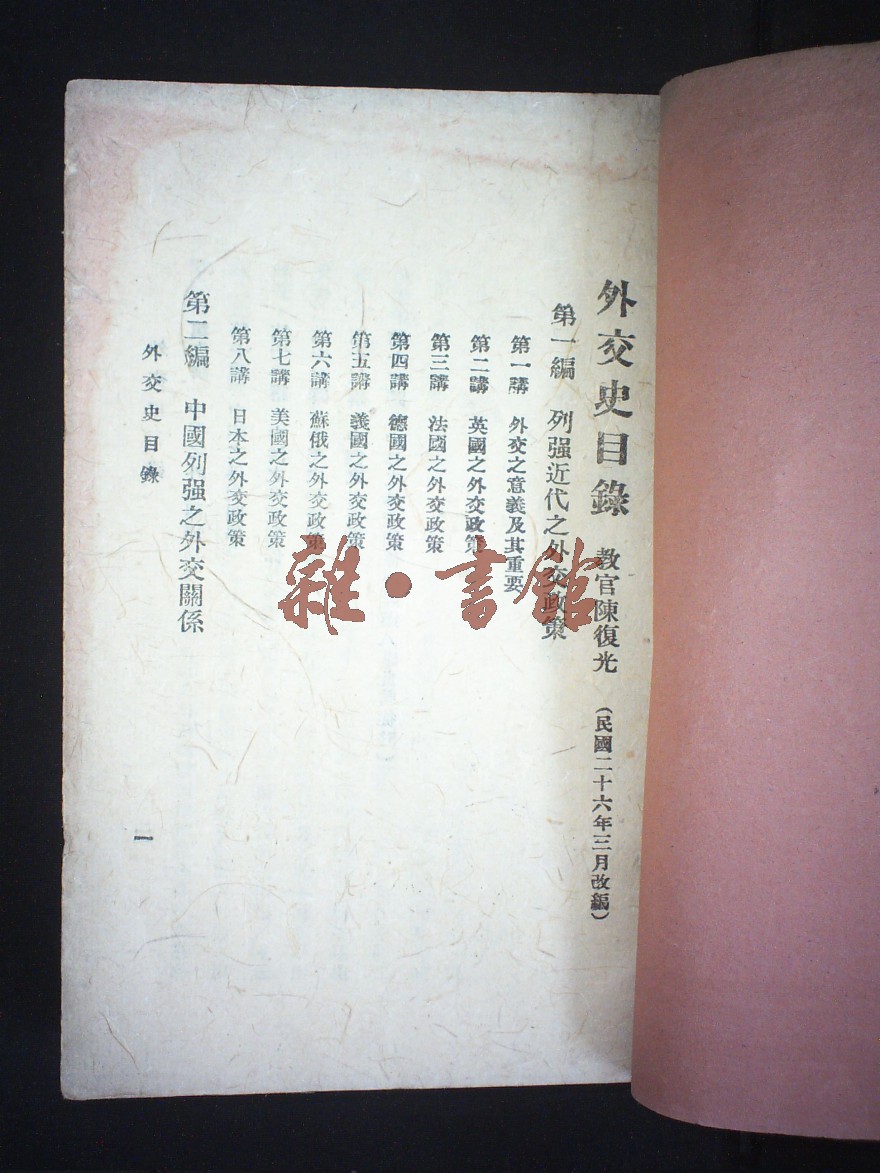 外交史目錄　教官陳復光　（民國二十六年三月改編）
第一編　列强近代之外交政策
第一講　外交之意義及其重要
第二講　英國之外交政策
第三講　法國之外交政策
第四講　德國之外交政策
第五講　義國之外交政策
第六講　蘇俄之外交政策
第七講　美國之外交政策
第八講　日本之外交政策
第二編　中國列强之外交關係
外交史目錄
一
雜·書館